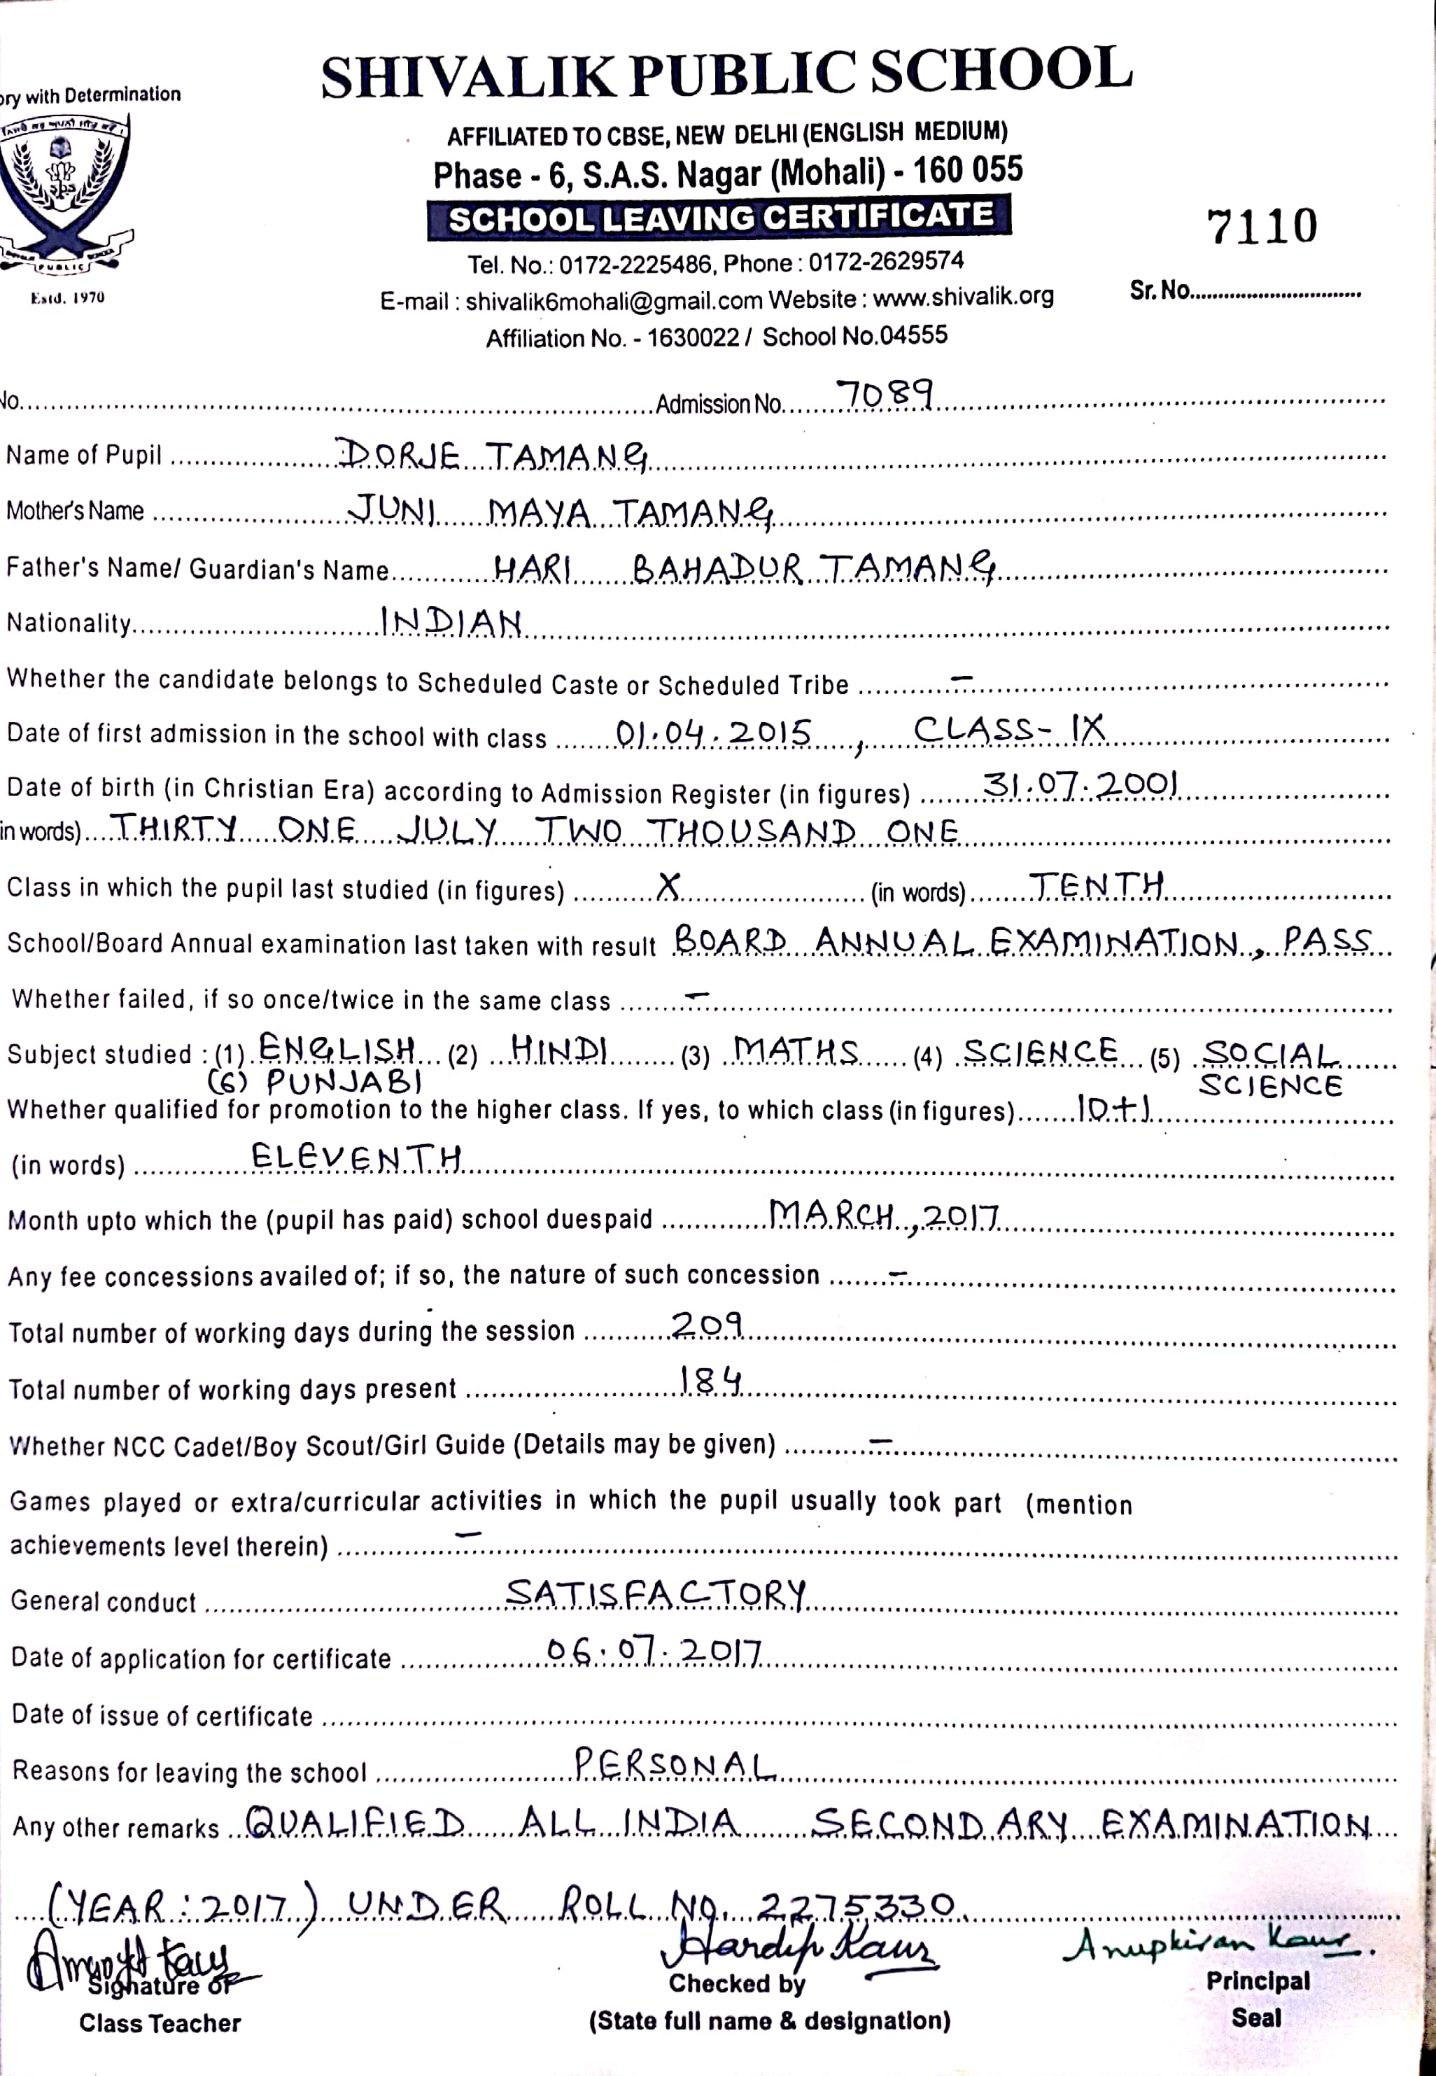 SHIVALIK PUBLIC SCHOOL
ory with Determination
AFFILIATED TO CBSE, NEW DELHI (ENGLISH MEDIUM)
Phase - 6, S.A.S. Nagar (Mohali) - 160 055
SCHOOL LEAVING CERTIFICATE
7110
Tel. No.: 0172-2225486, Phone : 0172-2629574
PUBLIC
Estd. 1970
E-mail : shivalik6mohali@gmail.com Website : www.shivalik.org
Sr. No..............................
Affiliation No. - 1630022 / School No.04555
No.......... Admission No. 7089
Name of Pupil DORJE TAMANG
Mother's Name JUNI MAYA TAMANG
Father's Name/ Guardian's Name HARI BAHADUR TAMANG
Nationality INDIAN
Whether the candidate belongs to Scheduled Caste or Scheduled Tribe –
Date of first admission in the school with class 01.04.2015, CLASS- IX
Date of birth (in Christian Era) according to Admission Register (in figures) 31.07.2001
in words) THIRTY ONE JULY TWO THOUSAND ONE
Class in which the pupil last studied (in figures) X (in words) TENTH
School/Board Annual examination last taken with result BOARD ANNUAL EXAMINATION, PASS
Whether failed, if so once/twice in the same class –
Subject studied : (1) ENGLISH (2) HINDI (3) MATHS (4) SCIENCE (5) SOCIAL
(6) PUNJABI SCIENCE
Whether qualified for promotion to the higher class. If yes, to which class (in figures) 10+1
(in words) ELEVENTH
Month upto which the (pupil has paid) school duespaid MARCH, 2017
Any fee concessions availed of; if so, the nature of such concession –
Total number of working days during the session 209
Total number of working days present 184
Whether NCC Cadet/Boy Scout/Girl Guide (Details may be given) –
Games played or extra/curricular activities in which the pupil usually took part (mention
achievements level therein) –
General conduct SATISFACTORY
Date of application for certificate 06.07.2017
Date of issue of certificate
Reasons for leaving the school PERSONAL
Any other remarks QUALIFIED ALL INDIA SECONDARY EXAMINATION
(YEAR : 2017) UNDER ROLL NO. 2275330
Hardip Kaur Anupkiran Kaur.
Signature of Checked by Principal
Class Teacher (State full name & designation) Seal